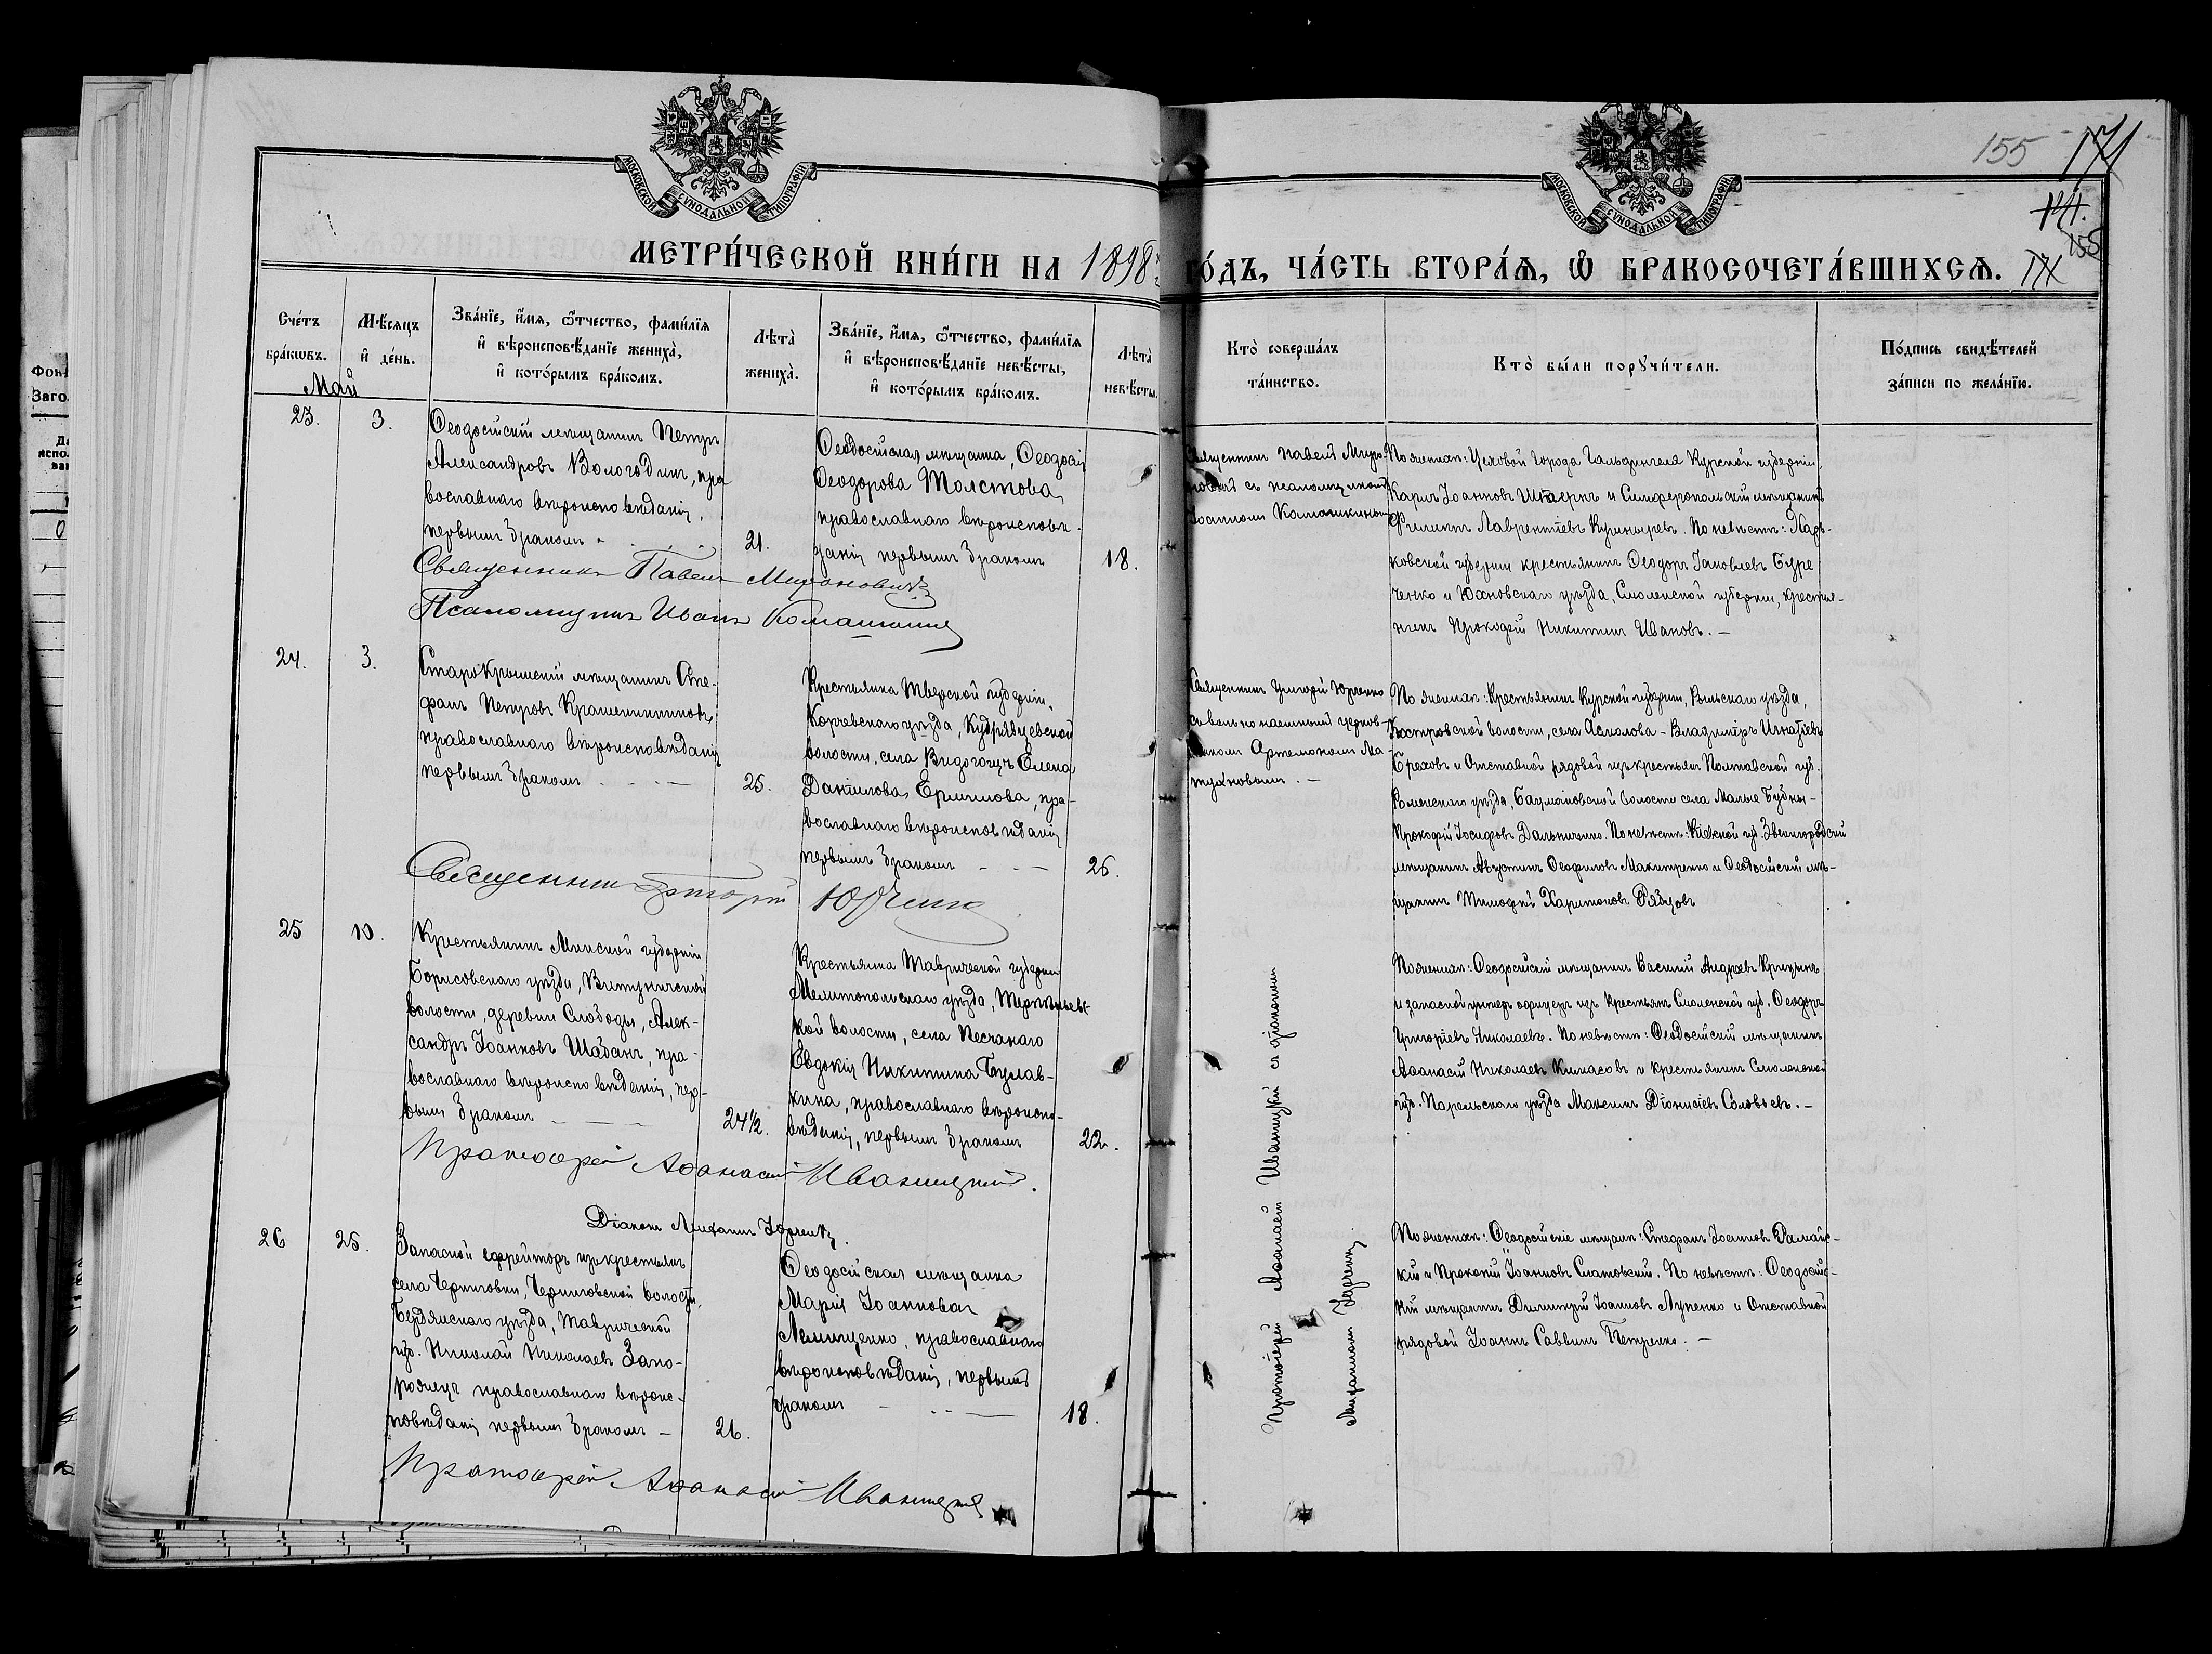 МОСКОВСКОЙ СѴНОДАЛЬНОЙ ТИПОГРАФІИ.
МОСКОВСКОЙ СѴНОДАЛЬНОЙ ТИПОГРАФІИ.
155 171
141.
155
МЕТРИ́ЧЕСКОЙ КНИ́ГИ НА 1898 ГО́ДЪ, ЧА́СТЬ ВТОРА́Ѧ, Ѡ҆ БРАКОСОЧЕТА́ВШИХСѦ. 171
Сче́тъ бра́кѡвъ.
Мѣ́сѧцъ и҆ де́нь.
Зва́нїе, и҆́мѧ, ѻ҆́тчество, фами́лїѧ
и҆ вѣроисповѣ́данїе жениха̀,
и҆ кото́рымъ бра́комъ.
Лѣта̀ жениха̀.
Зва́нїе, и҆́мѧ, ѻ҆́тчество, фами́лїѧ
и҆ вѣроисповѣ́данїе невѣ́сты,
и҆ кото́рымъ бра́комъ.
Лѣта̀ невѣ́сты.
Кто̀ соверша́лъ
та́инство.
Кто̀ бы́ли порꙋчи́тели.
По́дпись свидѣ́телей
за́писи по жела́нїю.
Май
23.
3.
Ѳеодосійскій мѣщанинъ Петръ
Александровъ Вологодинъ, пра
вославнаго вѣроисповѣданія,
первымъ бракомъ
21.
Ѳеодосійская мѣщанка, Ѳеодосія
Ѳеодорова Толстова,
православнаго вѣроисповѣ-
данія первымъ бракомъ
18.
Священникъ Павелъ Миро-
новичъ съ псаломщикомъ
Іоанномъ Камашкинымъ
По женихѣ: Цеховой города Курской губерніи,
Карлъ Іоанновъ и Симферопольскій мѣщанинъ
Филиппъ Лаврентіевъ. По невѣстѣ: Харь-
ковской губерніи крестьянинъ Ѳеодоръ Іаковлевъ Буре
ченко и Юхновскаго уѣзда, Смоленской губерніи, крестья-
нинъ Прокофій Никитинъ Ивановъ. —
Священникъ Павелъ Мироновичъ
Псаломщикъ Иванъ Комашкинъ
24.
3.
Старокрымскій мѣщанинъ Сте-
фанъ Петровъ Крашенинниковъ,
православнаго вѣроисповѣданія
первымъ бракомъ
25.
Крестьянка Тверской губерніи,
Корчевскаго уѣзда, Кудрявцевской
волости, села Видогощъ Елена
Даніилова Ермилова, пра-
вославнаго вѣроисповѣданія
первымъ бракомъ
26.
Священникъ Григорій Юрченко
съ вольнонаемнымъ
Артемономъ Ма-
тухновымъ. —
По женихѣ: Крестьянинъ Курской губерніи, Рыльскаго уѣзда,
Костровской волости, села Асмолова - Владиміръ Игнатіевъ
Ереховъ и Отставной рядовой изъ крестьянъ Полтавской губ.
Роменскаго уѣзда, волости села Малые Бубны -
Прокофій Іосифовъ Дальниченко. По невѣстѣ: Кіевской губ. Звенигородскій
мѣщанинъ Августинъ Ѳеофиловъ Макитренко и Ѳеодосійскій мѣ-
щанинъ Тимофей Харитоновъ Рябцовъ
Священникъ Григорій Юрченко
25
10.
Крестьянинъ Минской губерніи
Борисовскаго уѣзда, Витуничской
волости, деревни Слободы, Алек-
сандръ Іоанновъ Шабанъ, пра-
вославнаго вѣроисповѣданія, пер-
вымъ бракомъ
24½.
Крестьянка Таврической губерніи
Мелитопольскаго уѣзда, Терпѣньевс
кой волости, села Песчанаго
Евдокія Никитина Булав-
кина, православнаго вѣроиспо-
вѣданія, первымъ бракомъ
22.
Протоіерей Аѳанасій Иваницкій съ діакономъ
Михаиломъ Юрченко.
По женихѣ: Ѳеодосійскій мѣщанинъ Василій Андреевъ Крицынъ
и запасной унтеръ офицеръ изъ крестьянъ Смоленской губ. Ѳеодоръ
Григоріевъ Николаевъ. По невѣстѣ: Ѳеодосійскій мѣщанинъ
Аѳанасій Николаевъ Климасовъ и крестьянинъ Смоленской
губ. Порѣчскаго уѣзда Максимъ Діонисіевъ Соловьевъ. —
Протоіерей Аѳанасій Иваницкій.
Діаконъ Михаилъ Юрченко.
26
25.
Запасной ефрейторъ изъ крестьянъ
села Черниговки, Черниговской волости,
Бердянскаго уѣзда, Таврической
губ. Николай Николаевъ Запо-
рожецъ православнаго вѣроис-
повѣданія первымъ бракомъ —
26.
Ѳеодосійская мѣщанка
Марія Іоаннова
Лемищенко, православнаго
вѣроисповѣданія, первымъ
бракомъ
18.
По женихѣ: Ѳеодосійскіе мѣщане: Стефанъ Іоанновъ Рамайс-
кій и Прокопій Іоанновъ Слатовскій. По невѣстѣ: Ѳеодосійс-
кій мѣщанинъ Димитрій Іоанновъ Лупенко и Отставной
рядовой Іоаннъ Саввинъ Петренко. —
Протоіерей Аѳанасій Иваницкій